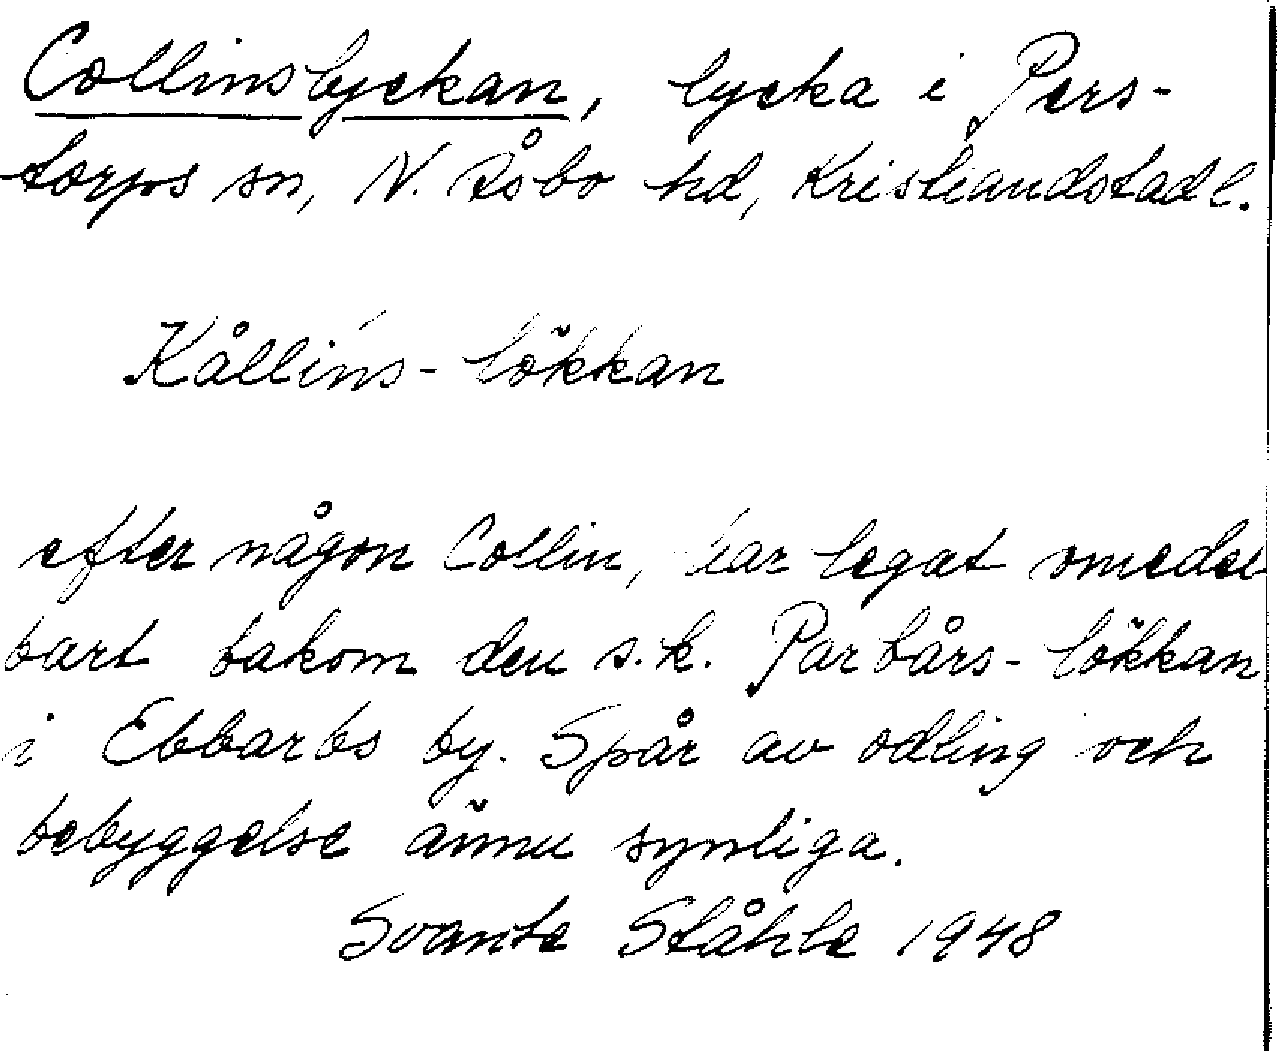 Collinslyckan, lycka i Pers-
torps sn, N. Åsbo hd, Kristiandstad l.
Kållins- lökkan
efter någon Collin, har legat omedel
bart bakom den s.k. Parbårs- lökkan
i Ebbarbs by. Spår av odling och
bebyggelse ännu synliga.
Svante Ståhle 1948